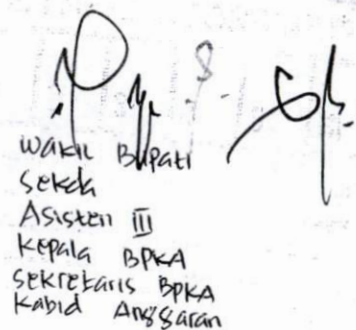 Wakil Bupati
Sekda
Asisten III
Kepala BPKA
Sekretaris BPKA
Kabid Anggaran